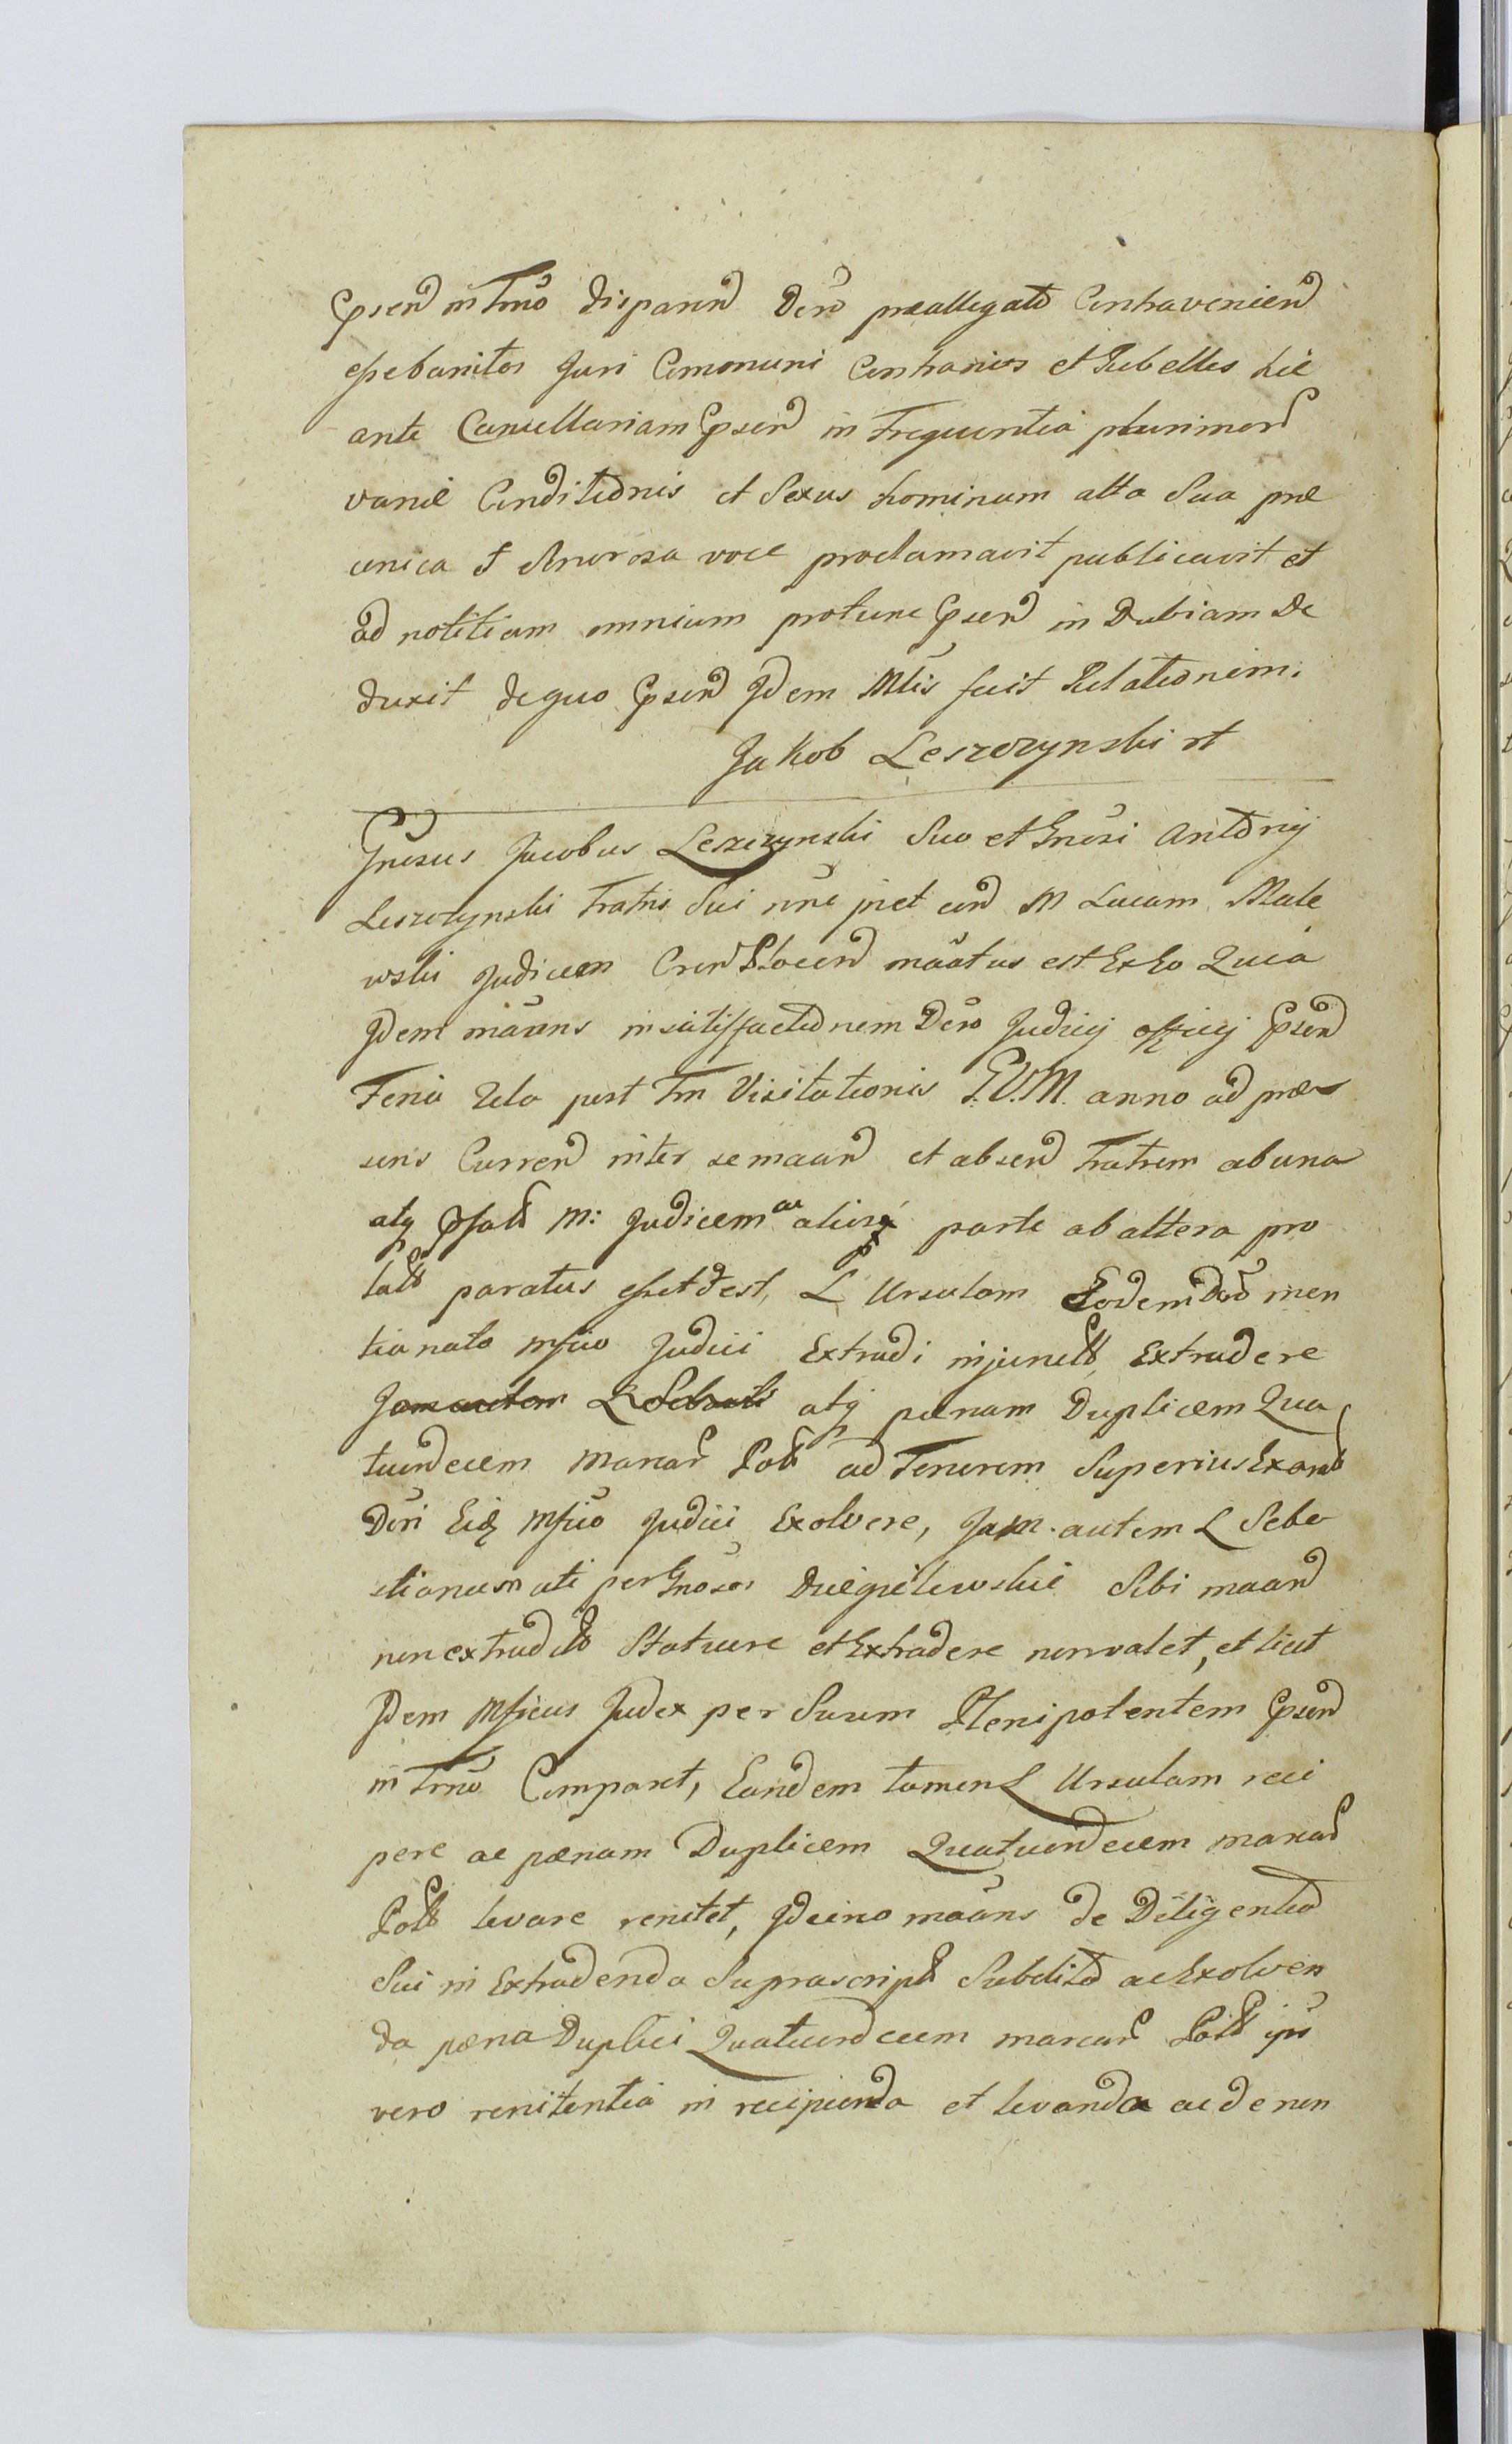 Ppsen in Trno disparen Dcro præallegato Contravenien
esse banitos Juri Communi Contrarios et Rebelles hic
ante Cancellariam Ppsen in Frequentia plurimor
variæ Conditionis et Sexus hominum alta Sua præ
conica & Sonorosa voce proclamavit publicavit et
ad notitiam omnium protunc Ppsen in Dubiam de
duxit de quo Ppsen Jdem Mlis fecit Relationem.
Jakob Leszczynski st
Gnosus Jacobus Leszczynski Suo et Gnosi Antonij
Leszczynski Fratris Sui nne pnet con M Lucam Male
wski Judicem Cren Plocen maatus est Ex Eo Quia
Jdem maans in satisfactionem Dcro Judicij officij Ppsen
Feria 2da post Fm Visitationis B.V.M. anno ad præ
sens Curren inter se maan et absen Fratrem ab una
atq Pfat M: Judicem ac aliis parte ab altera pro
lat paratus esset & est, L Ursulam Eodem Dcro men
tionato Mfico Judici Extradi injunct, Extradere
atq pænam Duplicem Qua
tuordecem Marcar Pol ad Tenorem Superius Exarat
Dcri Eid Mfico Judici Exolvere, Jam autem L Seba
stianum uti per Gnosos Dzięgielewskie Sibi maan
non extradit Statuere et Extradere non valet, et licet
Jdem Mficus Judex per Suum Plenipotentem Ppsen
in Trno Comparet, Eandem tamen L Ursulam reci
pere ac pænam Duplicem Quatuordecem marcar
Pol levare renitet, Jdcirco maans de Diligentia
Sui in Extradenda Suprascript Subdita ac Exolven
da pæna Duplici Quatuordecem marcar Pol ips
vero renitentia in recipienda et levanda ac de non